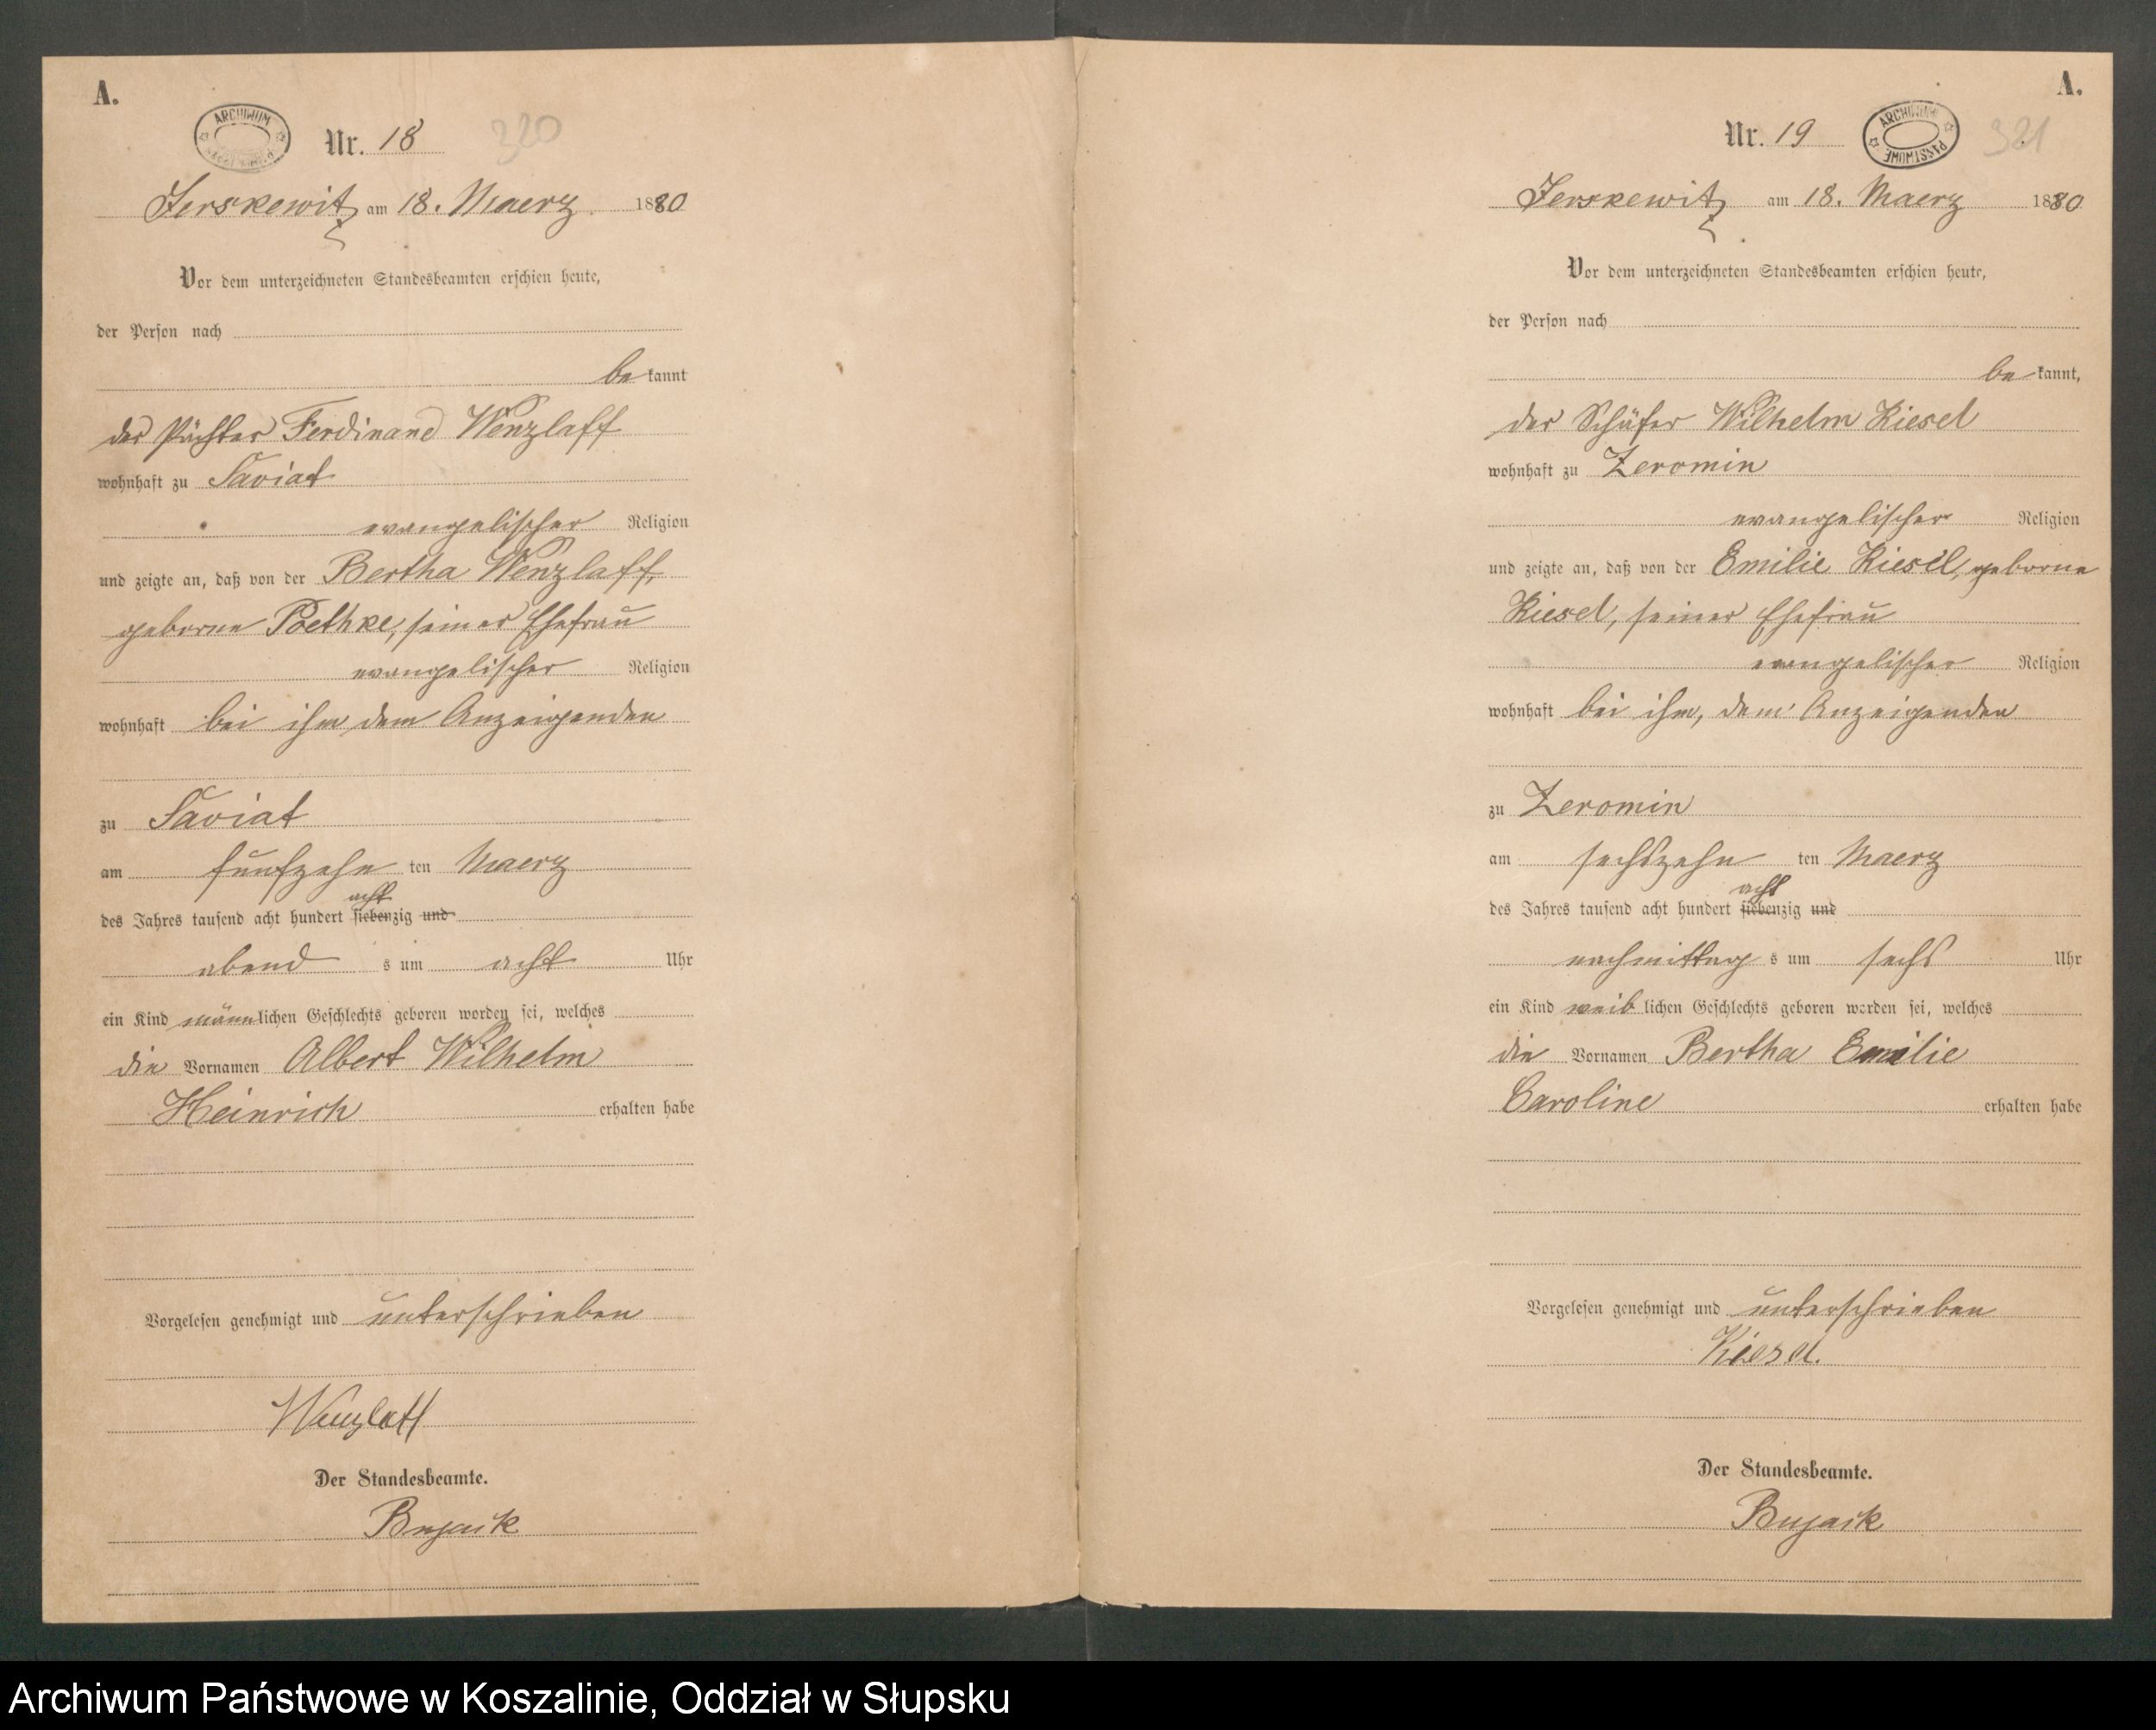 A.
ARCHIWUM
Nr. 18
320
Jerskewitz am 18. Maerz 1880
Vor dem unterzeichneten Standesbeamten erschien heute,
der Person nach
be kannt
der Pächter Ferdinand Wenzlaff
wohnhaft zu Saviat
evangelischer Religion
und zeigte an, daß von der Bertha Wenzlaff,
geborne Poethke, seiner Ehefrau
evangelischer Religion
wohnhaft bei ihm dem Anzeigenden
zu Saviat
am fünfzehn ten Maerz
acht
des Jahres tausend acht hundert siebenzig und
abend s um acht Uhr
ein Kind männlichen Geschlechts geboren worden sei, welches
die Vornamen Albert Wilhelm
Heinrich erhalten habe
Vorgelesen genehmigt und unterschrieben
Wenzlaff
Der Standesbeamte.
Bujack
A.
Nr. 19
ARCHIWUM PAŃSTWOWE
321
Jerskewitz am 18. Maerz 1880
Vor dem unterzeichneten Standesbeamten erschien heute,
der Person nach
be kannt,
der Schäfer Wilhelm Kiesel
wohnhaft zu Zeromin
evangelischer Religion
und zeigte an, daß von der Emilie Kiesel, geborne
Kiesel, seiner Ehefrau
evangelischer Religion
wohnhaft bei ihm, dem Anzeigenden
zu Zeromin
am sechszehn ten Maerz
acht
des Jahres tausend acht hundert siebenzig und
nachmittag s um sechs Uhr
ein Kind weib lichen Geschlechts geboren worden sei, welches
die Vornamen Bertha Emilie
Caroline erhalten habe
Vorgelesen genehmigt und unterschrieben
Kiesel.
Der Standesbeamte.
Bujack
Archiwum Państwowe w Koszalinie, Oddział w Słupsku